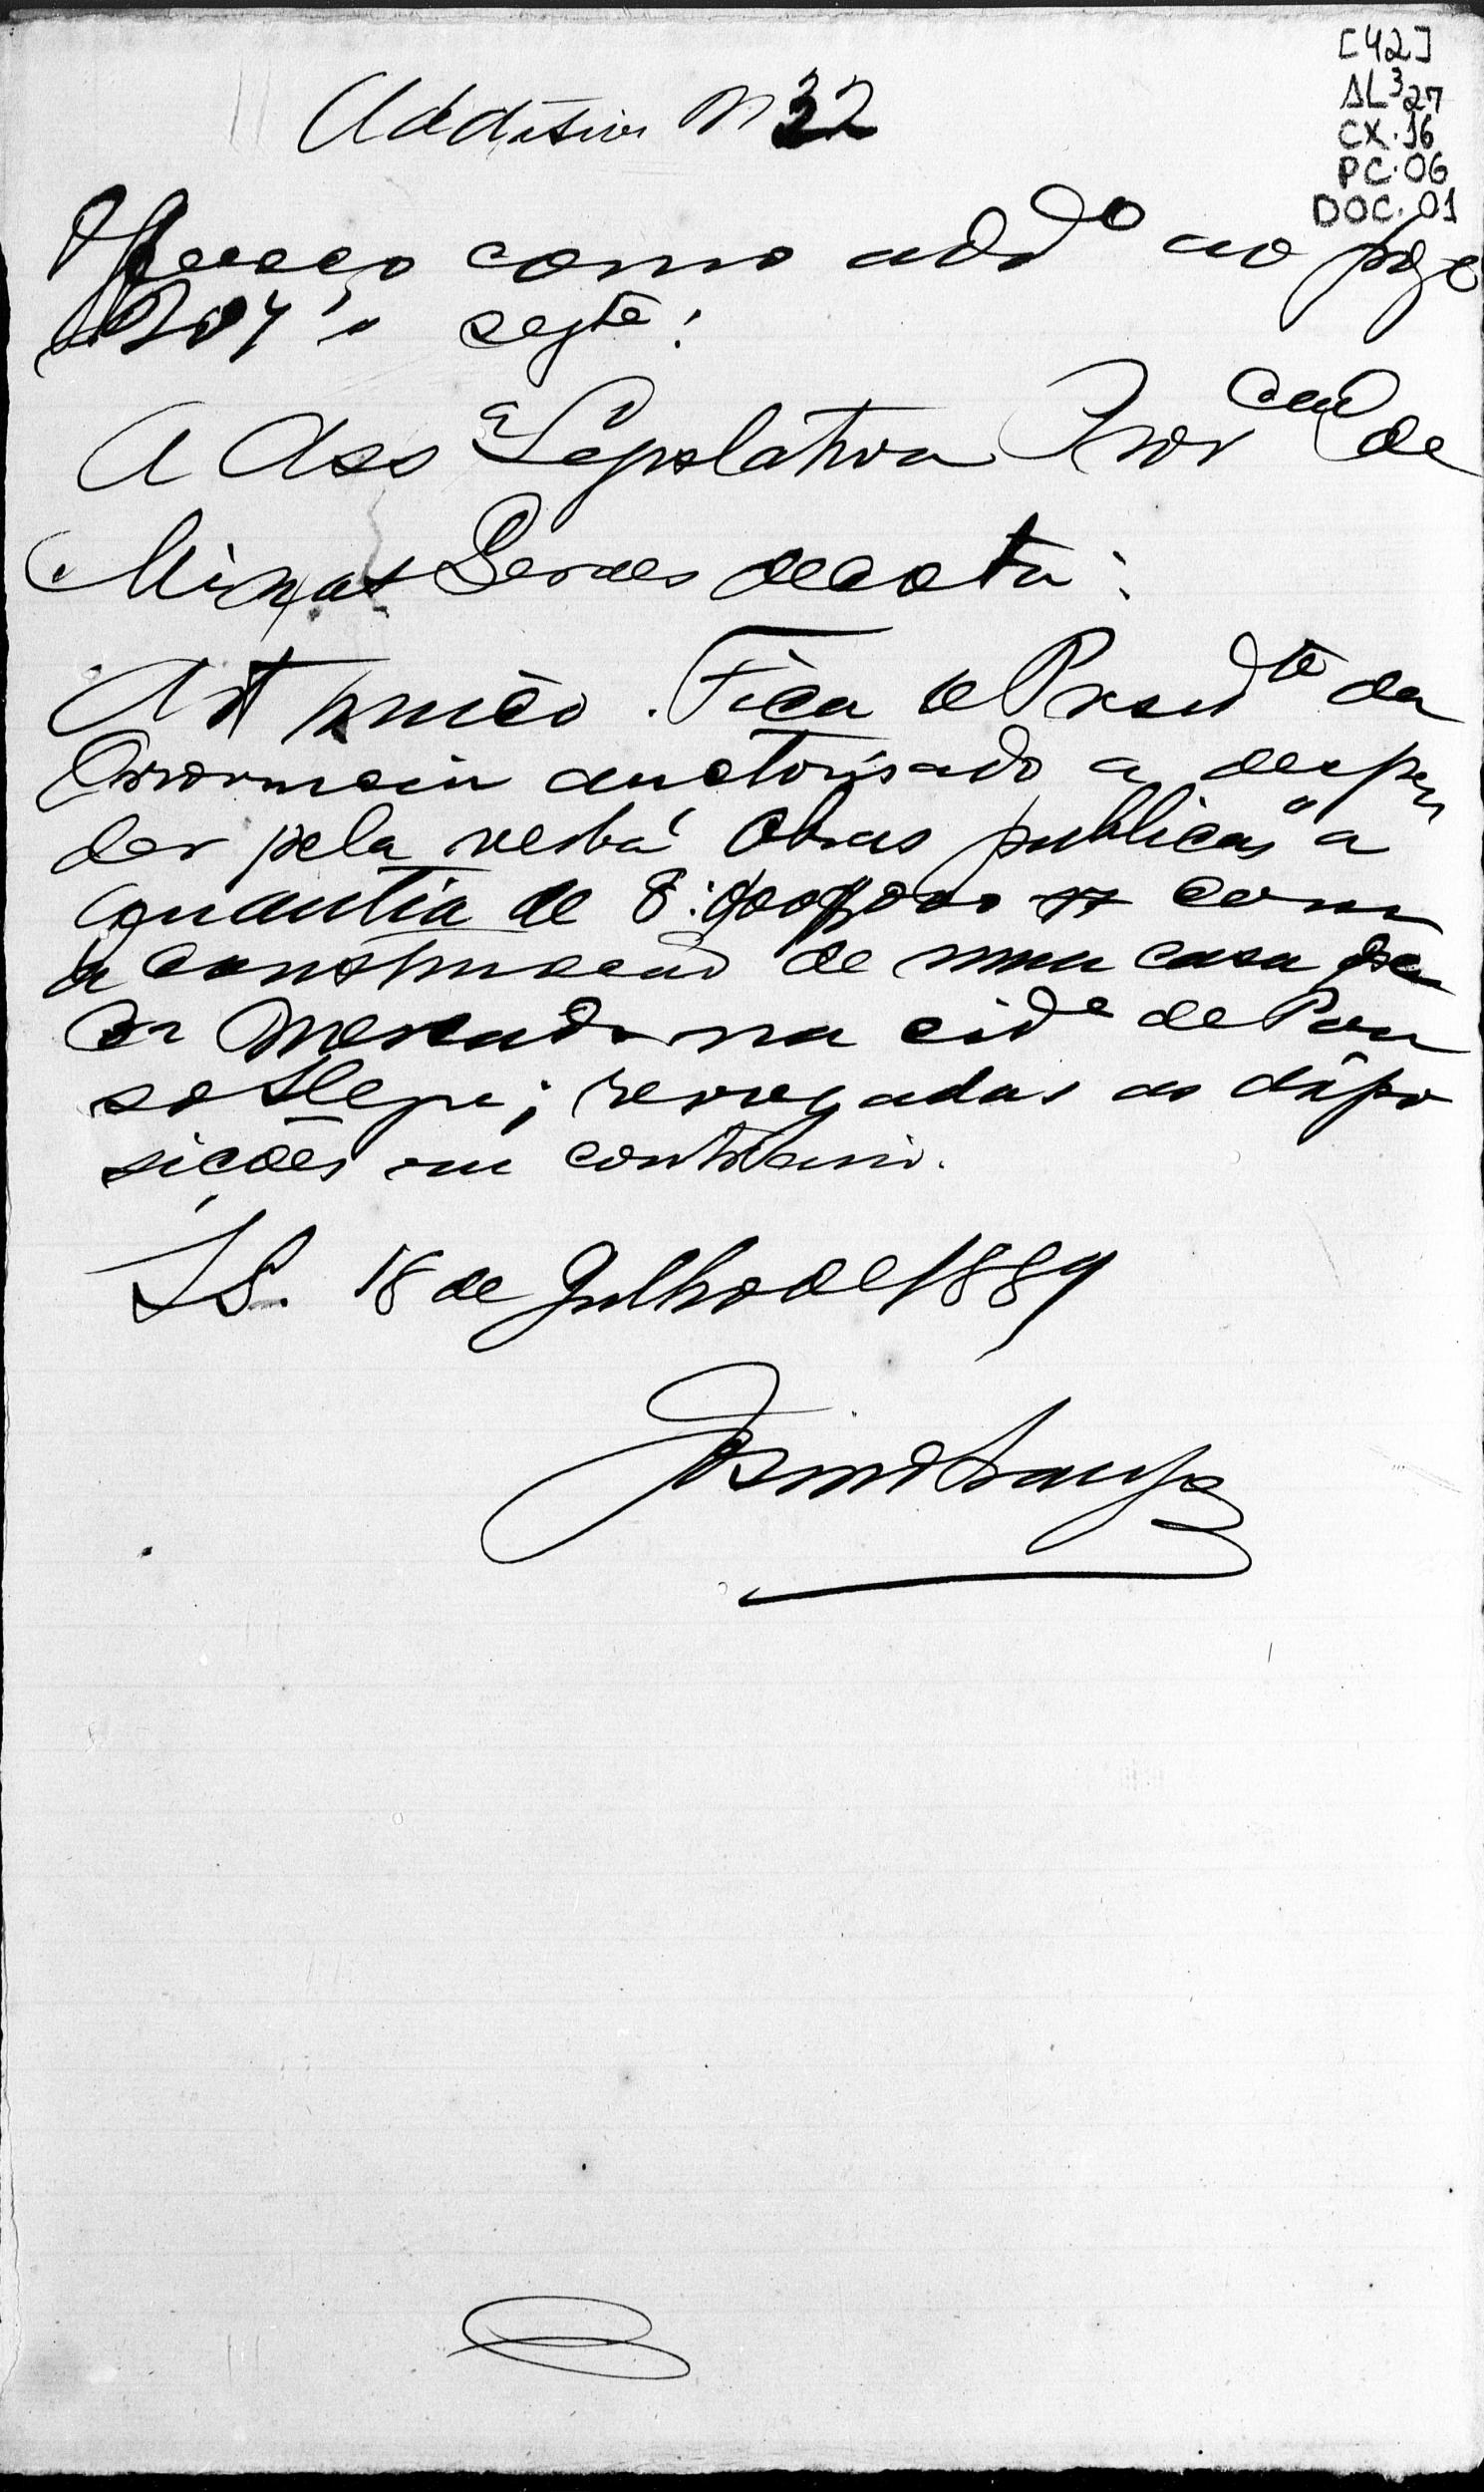 [42]
AL³27
CX.16
PC.06
DOC.01
Additivo N 32
Offereço como addº ao proj
o segte:
A Assª Legislativa Provcal de
Minas Geraes decreta:
Art unico. Fica o Presidte da
Provincia auctorisado a despen
der pela verba "Obras publicas" a
quantia de 8:000$000 rs com
a construcção de uma casa pa
ra Mercado na cide de Pou
so Alegre; revogadas as dispo
sições em contrario.
SS. 18 de Julho de 1889